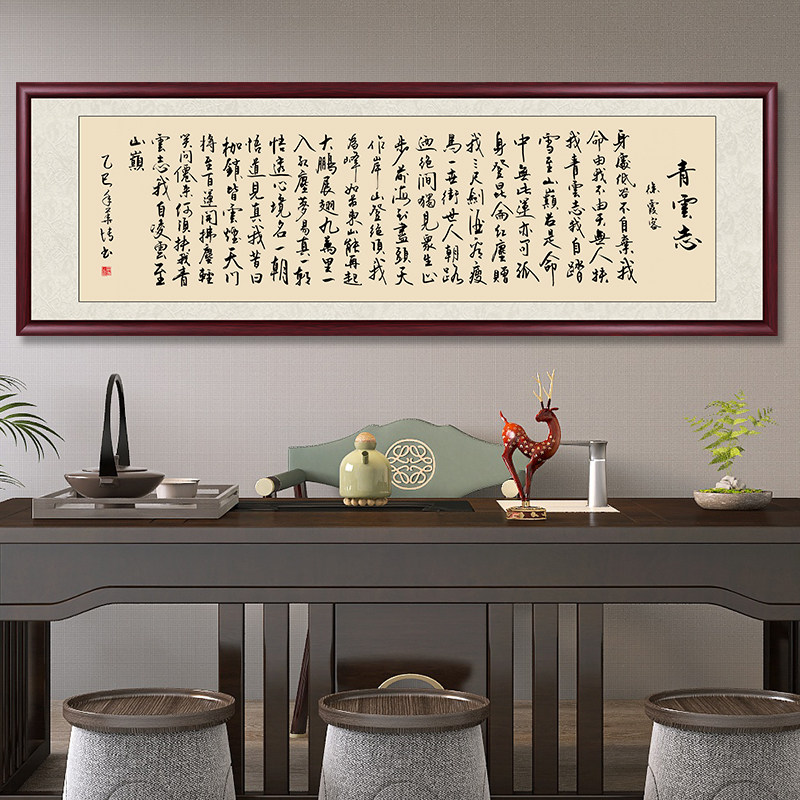 青雲志
徐霞客
身處低谷不自棄我
命由我不由天無人扶
我青雲志我自踏
雪至山巔若是命
中無此運亦可孤
身登昆侖紅塵贈
我三尺劍酒瘦
馬一世街世人朝路
絕澗獨見眾生止
步前海到盡頭天
作岸山登絕頂我
為峰如若東山能再起
大鵬展翅九萬里一
入紅塵夢易真一朝
悟透心境名一朝
悟道見真我昔日
枷鎖皆雲煙天門
將至百蓮開拂塵輕
笑問何須扶我青
雲志我自凌雲至
山巔
乙巳年書